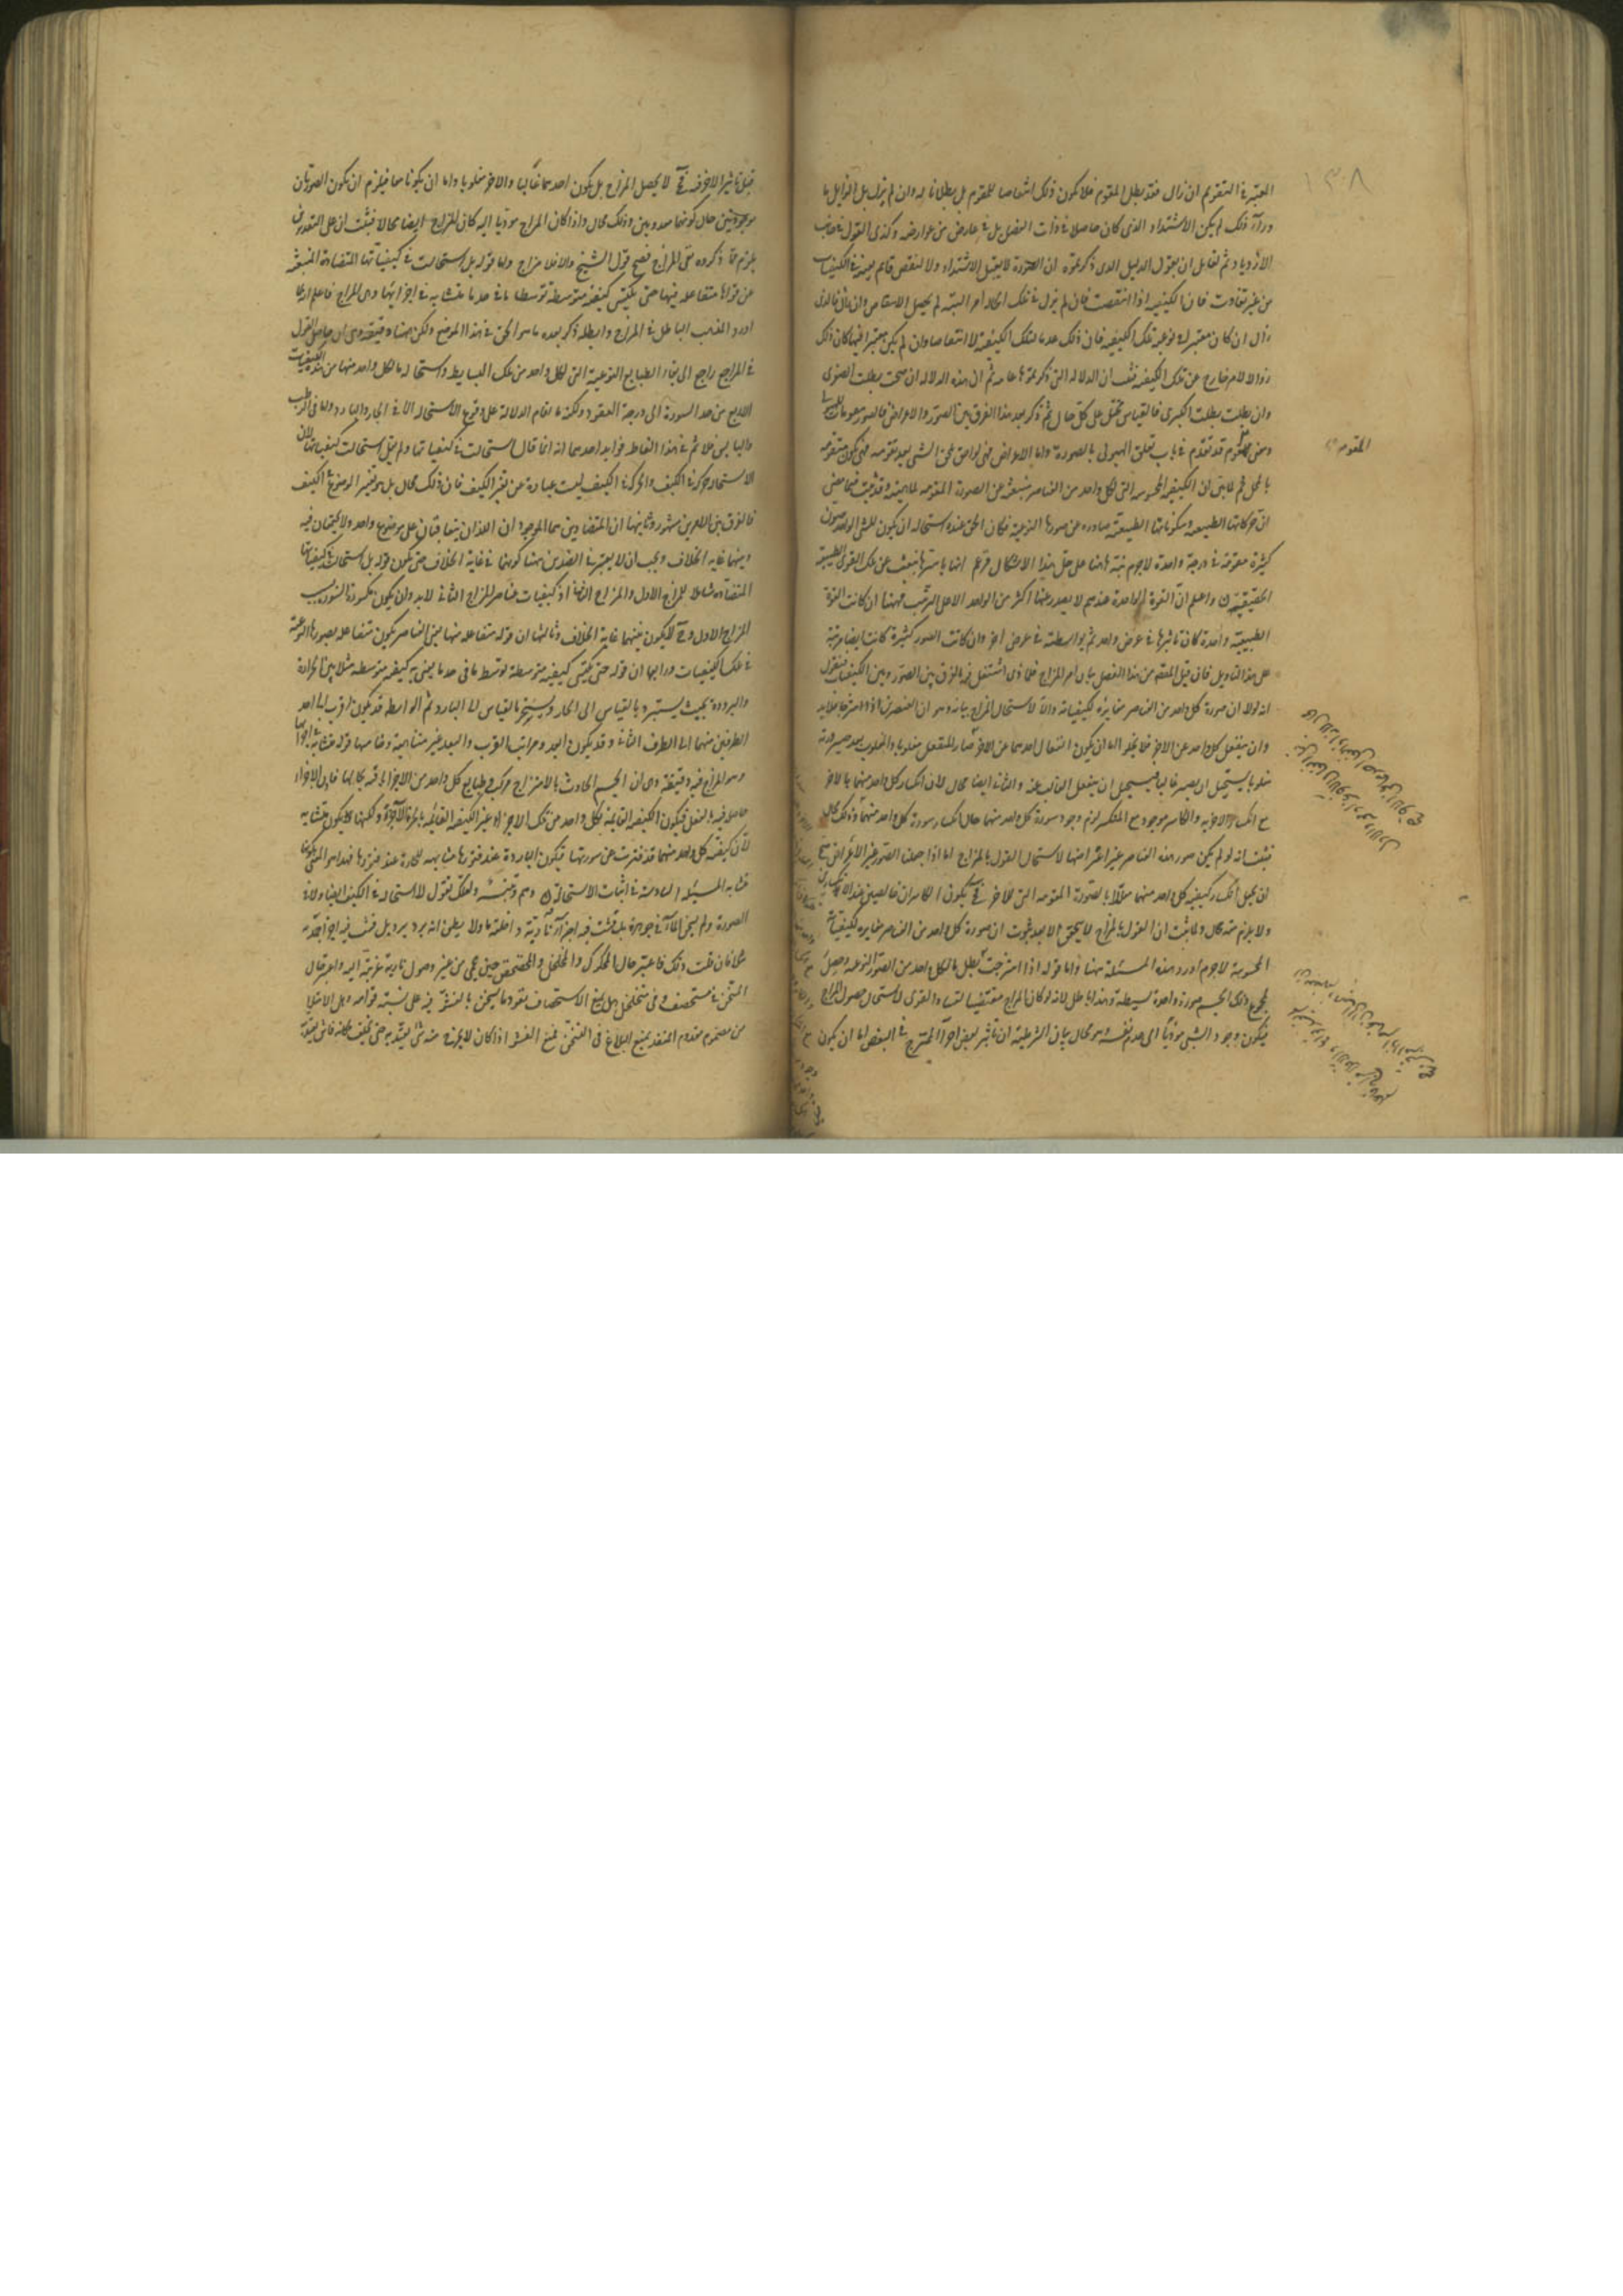 المعتبر في التقويم ان زال فقد بطل المقوم فلا يكون ذلك انتقاصا للمقوم بل بطلانا له وان لم يزل بل الزايل ما
وراء ذلك لم يكن الاشتداد الذي كان حاصلا في ذات الفصل بل في عارض من عوارضه وكذى القول في جانب
الازدياد ثم لقايل ان يقول الدليل الذي ذكرتموه ان الصورة لا يقبل الاشتداد ولا التنقص قايم بعينه في الكيفيات
من غير تفاوت فان الكيفيه اذا انتقصت فان لم يزل في تلك الحالة امر البتة لم يحصل الانتقاص وان زال فالذي
زال ان كان معتبرا في نوعية تلك الكيفيه فان ذلك عدما لتلك الكيفيه لا انتقاصا وان لم يكن معتبرا فيها كان ذلك
زوالا لامر خارج عن تلك الكيفيه فثبت ان الدلاله التي ذكرتموها عامه ثم ان هذه الدلاله ان صحت بطلت الصغرى
وان بطلت بطلت الكبرى فالقياس مختل على كل حال ثم ذكر بعد هذا الفرق بين الصور والاعراض فالصور مقومات للهيولى
ومعنى المقوم قد تقدم في باب تعلق الهيولى بالصورة واما الاعراض فهى لواحق تلحق الشى بعد تقومه فهى يكون متقومه
بالمحل ثم لما بين ان الكيفيه المحسوسه التى لكل واحد من العناصر منبعثه عن الصورة المقومه لماهيته وقد ثبت فيما مضى
ان حركاتها الطبيعيه وسكوناتها الطبيعيه صادره عن صورها النوعية فكان الحق عنده استحاله ان يكون للشى الواحد صورا
كثيرة مقومة في درجة واحدة لاجرم نبه هاهنا على حل هذا الاشكال فزعم انها باسرها منبعث عن تلك القوى الطبيعية
الحقيقية واعلم ان القوة الواحدة عندهم لا يصدر عنها اكثر من الواحد الا على الترتب فههنا ان كانت القوة
الطبيعية واحدة كان تاثيرها في عرض واحد ثم بواسطته في عرض اخر وان كانت الصور كثيرة كانت ايضا مرتبة
على هذا التاويل فان قيل المقصود من هذا الفصل بيان امر المزاج فلماذى اشتغل فيه بالفرق بين الصور وبين الكيفيات فنقول
انه لولا ان صورة كل واحد من العناصر مغايره لكيفياته والا لاستحال المزاج بيانه وهو ان العنصرين اذا امتزجا فلابد
وان ينفعل كل واحد عن الاخر فلا يخلو اما ان يكون انفعال احدهما عن الاخر صار المنفعل مغلوبا والمغلوب بعد صيرورته
مغلوبا يستحيل ان يصير غالبا فيستحيل ان ينفعل الغالب عنه والثانى ايضا محال لان انكسار كل واحد منهما بالاخر
مع انكسار الاخر به والكاسر موجود مع المنكسر لزم وجود سورة كل واحد منهما حال انكسار سورة كل واحد منهما وذلك محال
فثبت انه لو لم يكن صور هذه العناصر غير اعراضها لاستحال القول بالمزاج اما اذا جعلنا الصور غير الاعراض صح
ان يجعل انكسار كيفيه كل واحد منهما معللا بالصورة المقومه التى للاخر فح يكون الكاسران حاصلين عند الانكسارين
ولا يلزم منه محال ولما ثبت ان القول بالمزاج لا يتحقق الا بعد ثبوت ان صورة كل واحد من العناصر مغايره لكيفياته
المحسوسة لاجرم اورد هذه المسئلة ههنا واما قوله اذا امتزجت لم يبطل ما لكل واحد من الصور النوعيه وحصل
لمجموع ذلك الجسم صورة واحدة بسيطة وهذا باطل لانه لو كان المزاج مقتضيا لفساد القوى لاستحال حصول المزاج
فيكون وجود الشى موديا الى عدم نفسه وهو محال بيان الشرطية ان تاثير بعض اجزاء الممتزج في البعض اما ان يكون
المقومه
١٣٠٨
قبل تاثير الاخر فيه فح لا يحصل المزاج بل يكون احدهما غالبا والاخر مغلوبا واما ان يكونا معا فيلزم ان يكون الصورتان
موجودتين حال كونهما معدومين وذلك محال واذا كان المزاج موديا اليه كان المزاج ايضا محالا فثبت ان على التقديرين
يلزم مما ذكروه نفى المزاج فصح قول الشيخ والا فلا مزاج واما قوله بل استحالت في كيفياتها المتضادة المنبعثة
عن قواها متفاعله فيها حتى يكتسى كيفيه متوسطه توسطا ما في حد ما متشابه في اجزائها وهى المزاج فاعلم انه لما
اورد المذهب الباطل في المزاج وابطله ذكر بعده ما هو الحق في هذا الموضع ولكن ههنا دقيقة وهى ان حاصل القول
في المزاج راجع الى بقاء الطبايع النوعية التى لكل واحد من تلك البسايط واستحاله ما لكل واحد منها من هذه الكيفيات
الاربع من حد السورة الى درجة الفتور ولكنه ما اقام الدلالة على وقوع الاستحاله الا في الحار والبارد واما في الرطب
واليابس فلا ثم في هذا اللفاظ فوايد احدهما انه انما قال استحالت في كيفياتها ولم يقل استحالت كيفياتها لان
الاستحاله حركة في الكيف والحركة في الكيف ليست عبارة عن تغير الكيف فان ذلك محال بل هو تغير الموضوع في الكيف
فالفرق بين اللامرين مشهور وثانيها ان المتضادين هما الموجودان اللذان يتعاقبان على موضوع واحد ولا يجتمعان فيه
وبينهما غايه الخلاف ويجب ان لا يعتبر في الضدين ههنا كونهما في غاية الخلاف حتى يكون قوله بل استحالت في كيفياتها
المتضاده شاملا للمزاج الاول والمزاج الثانى اذ كيفيات عناصر المزاج الثانى لابد وان يكون مكسورة السورة بسبب
المزاج الاول وح لا يكون بينهما غاية الخلاف وثالثها ان قوله متفاعله فيها يعنى العناصر يكون متفاعله بصورها النوعية
في تلك الكيفيات ورابعها ان قوله حتى يكتسى كيفيه متوسطه توسطا ما في حد ما يعنى به كيفيه متوسطه مثلا بين الحرارة
والبرودة بحيث يستبرد بالقياس الى الحار ويستسخن بالقياس الى البارد ثم الواسطه قد يكون اقرب الى احد
الطرفين منهما الى الطرف الثانى وقد يكون ابعد ومراتب القرب والبعد غير متناهية وخامسها قوله متشابه في اجزائها
وهو المزاج فيه دقيقه وهى ان الجسم الحادث بالامتزاج مركب وطبايع كل واحد من الاجزاء باقيه بحالها فاذن الاجزاء
حاصله فيه بالفعل فيكون الكيفيه القايمه بكل واحد من تلك الاجزاء غير الكيفيه القايمه بالجزء الاخر ولكنها يكون متشابه
لان كيفيه كل واحد منهما قد فترت عن سورتها فيكون البارودة عند فتورها مشابهه للحرارة عند فتورها فهذا هو المعنى بكونها
متشابه المسئله السادسة في اثبات الاستحالة وهم وتنبيه ولعلك تقول لا استحاله في الكيف ايضا ولا في
الصورة ولم يسخن الماء في جوهره بل فشت فيه اجزاء نارية داخلته ولا يظن انه برد بل فشت فيه اجزاء جمدية
مثلا فان قلت ذلك فاعتبر حال المحكوك والمخلخل والمخضخض حين يحمى من غير وصول نارية غريبة اليه واعتبر حال
المسخن في مستحصف وفى متخلخل وهل يمنع الاستحصاف نفوذ ما يسخن بالفشو فيه على نسبة قوامه وهل الامتلا
من مصموم مفدوم المنفذ يمنع البلاغ في التسخن لمنع الفشو اذا كان لا يخرج منه شى يعتد به حتى يخلف مكانه فاش يعتد به